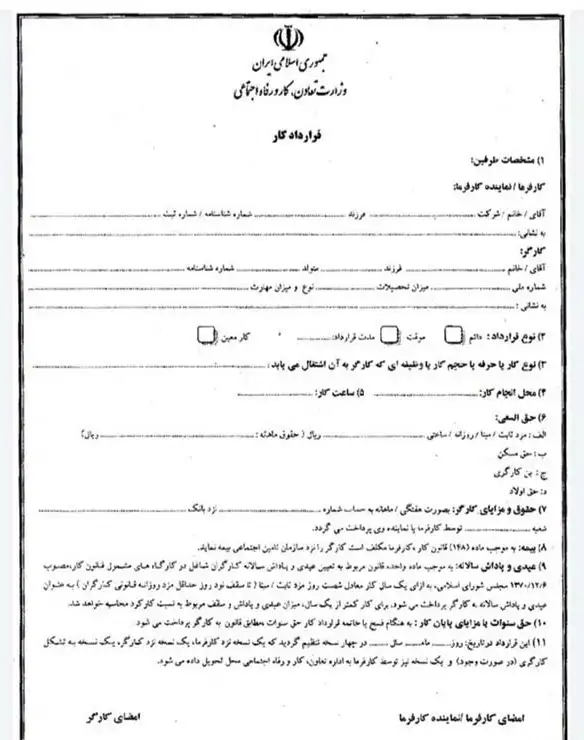 جمهوری اسلامی ایران
وزارت تعاون، کار و رفاه اجتماعی
قرارداد کار
۱) مشخصات طرفین:
کارفرما / نماینده کارفرما:
آقای / خانم / شرکت .................... فرزند .................... شماره شناسنامه / شماره ثبت ....................
به نشانی: ....................
کارگر:
آقای / خانم .................... فرزند .................... متولد .................... شماره شناسنامه ....................
شماره ملی .................... میزان تحصیلات .................... نوع و میزان مهارت ....................
به نشانی : ....................
۲) نوع قرارداد: دائم موقت مدت قرارداد: .................... کار معین
۳) نوع کار یا حرفه یا حجم کار یا وظیفه ای که کارگر به آن اشتغال می یابد : ....................
۴) محل انجام کار: .................... ۵) ساعت کار: ....................
۶) حق السعی:
الف : مزد ثابت / مبنا / روزانه / ساعتی .................... ریال ( حقوق ماهانه : .................... ریال)
ب : حق مسکن
ج : بن کارگری
د : حق اولاد
۷) حقوق و مزایای کارگر: بصورت هفتگی / ماهانه به حساب شماره .................... نزد بانک ....................
شعبه .................... توسط کارفرما یا نماینده وی پرداخت می گردد.
۸) بیمه: به موجب ماده (۱۴۸) قانون کار، کارفرما مکلف است کارگر را نزد سازمان تامین اجتماعی بیمه نماید.
۹) عیدی و پاداش سالانه: به موجب ماده واحده قانون مربوط به تعیین عیدی و پاداش سالانه کارگران شاغل در کارگاه های مشمول قانون کار، مصوب
۱۳۷۰/۱۲/۶ مجلس شورای اسلامی، به ازای یک سال کار معادل شصت روز مزد ثابت / مبنا ( تا سقف نود روز حداقل مزد روزانه قانونی کارگران ) به عنوان
عیدی و پاداش سالانه به کارگر پرداخت می شود. برای کار کمتر از یک سال، میزان عیدی و پاداش و سقف مربوط به نسبت کارکرد محاسبه خواهد شد.
۱۰) حق سنوات یا مزایای پایان کار : به هنگام فسخ یا خاتمه قرارداد کار حق سنوات مطابق قانون به کارگر پرداخت می شود.
۱۱) این قرارداد در تاریخ: روز........ ماه........ سال ........ در چهار نسخه تنظیم گردید که یک نسخه نزد کارفرما، یک نسخه نزد کارگر، یک نسخه به تشکل
کارگری (در صورت وجود) و یک نسخه نیز توسط کارفرما به اداره تعاون، کار و رفاه اجتماعی محل تحویل داده می شود.
امضای کارفرما /نماینده کارفرما امضای کارگر